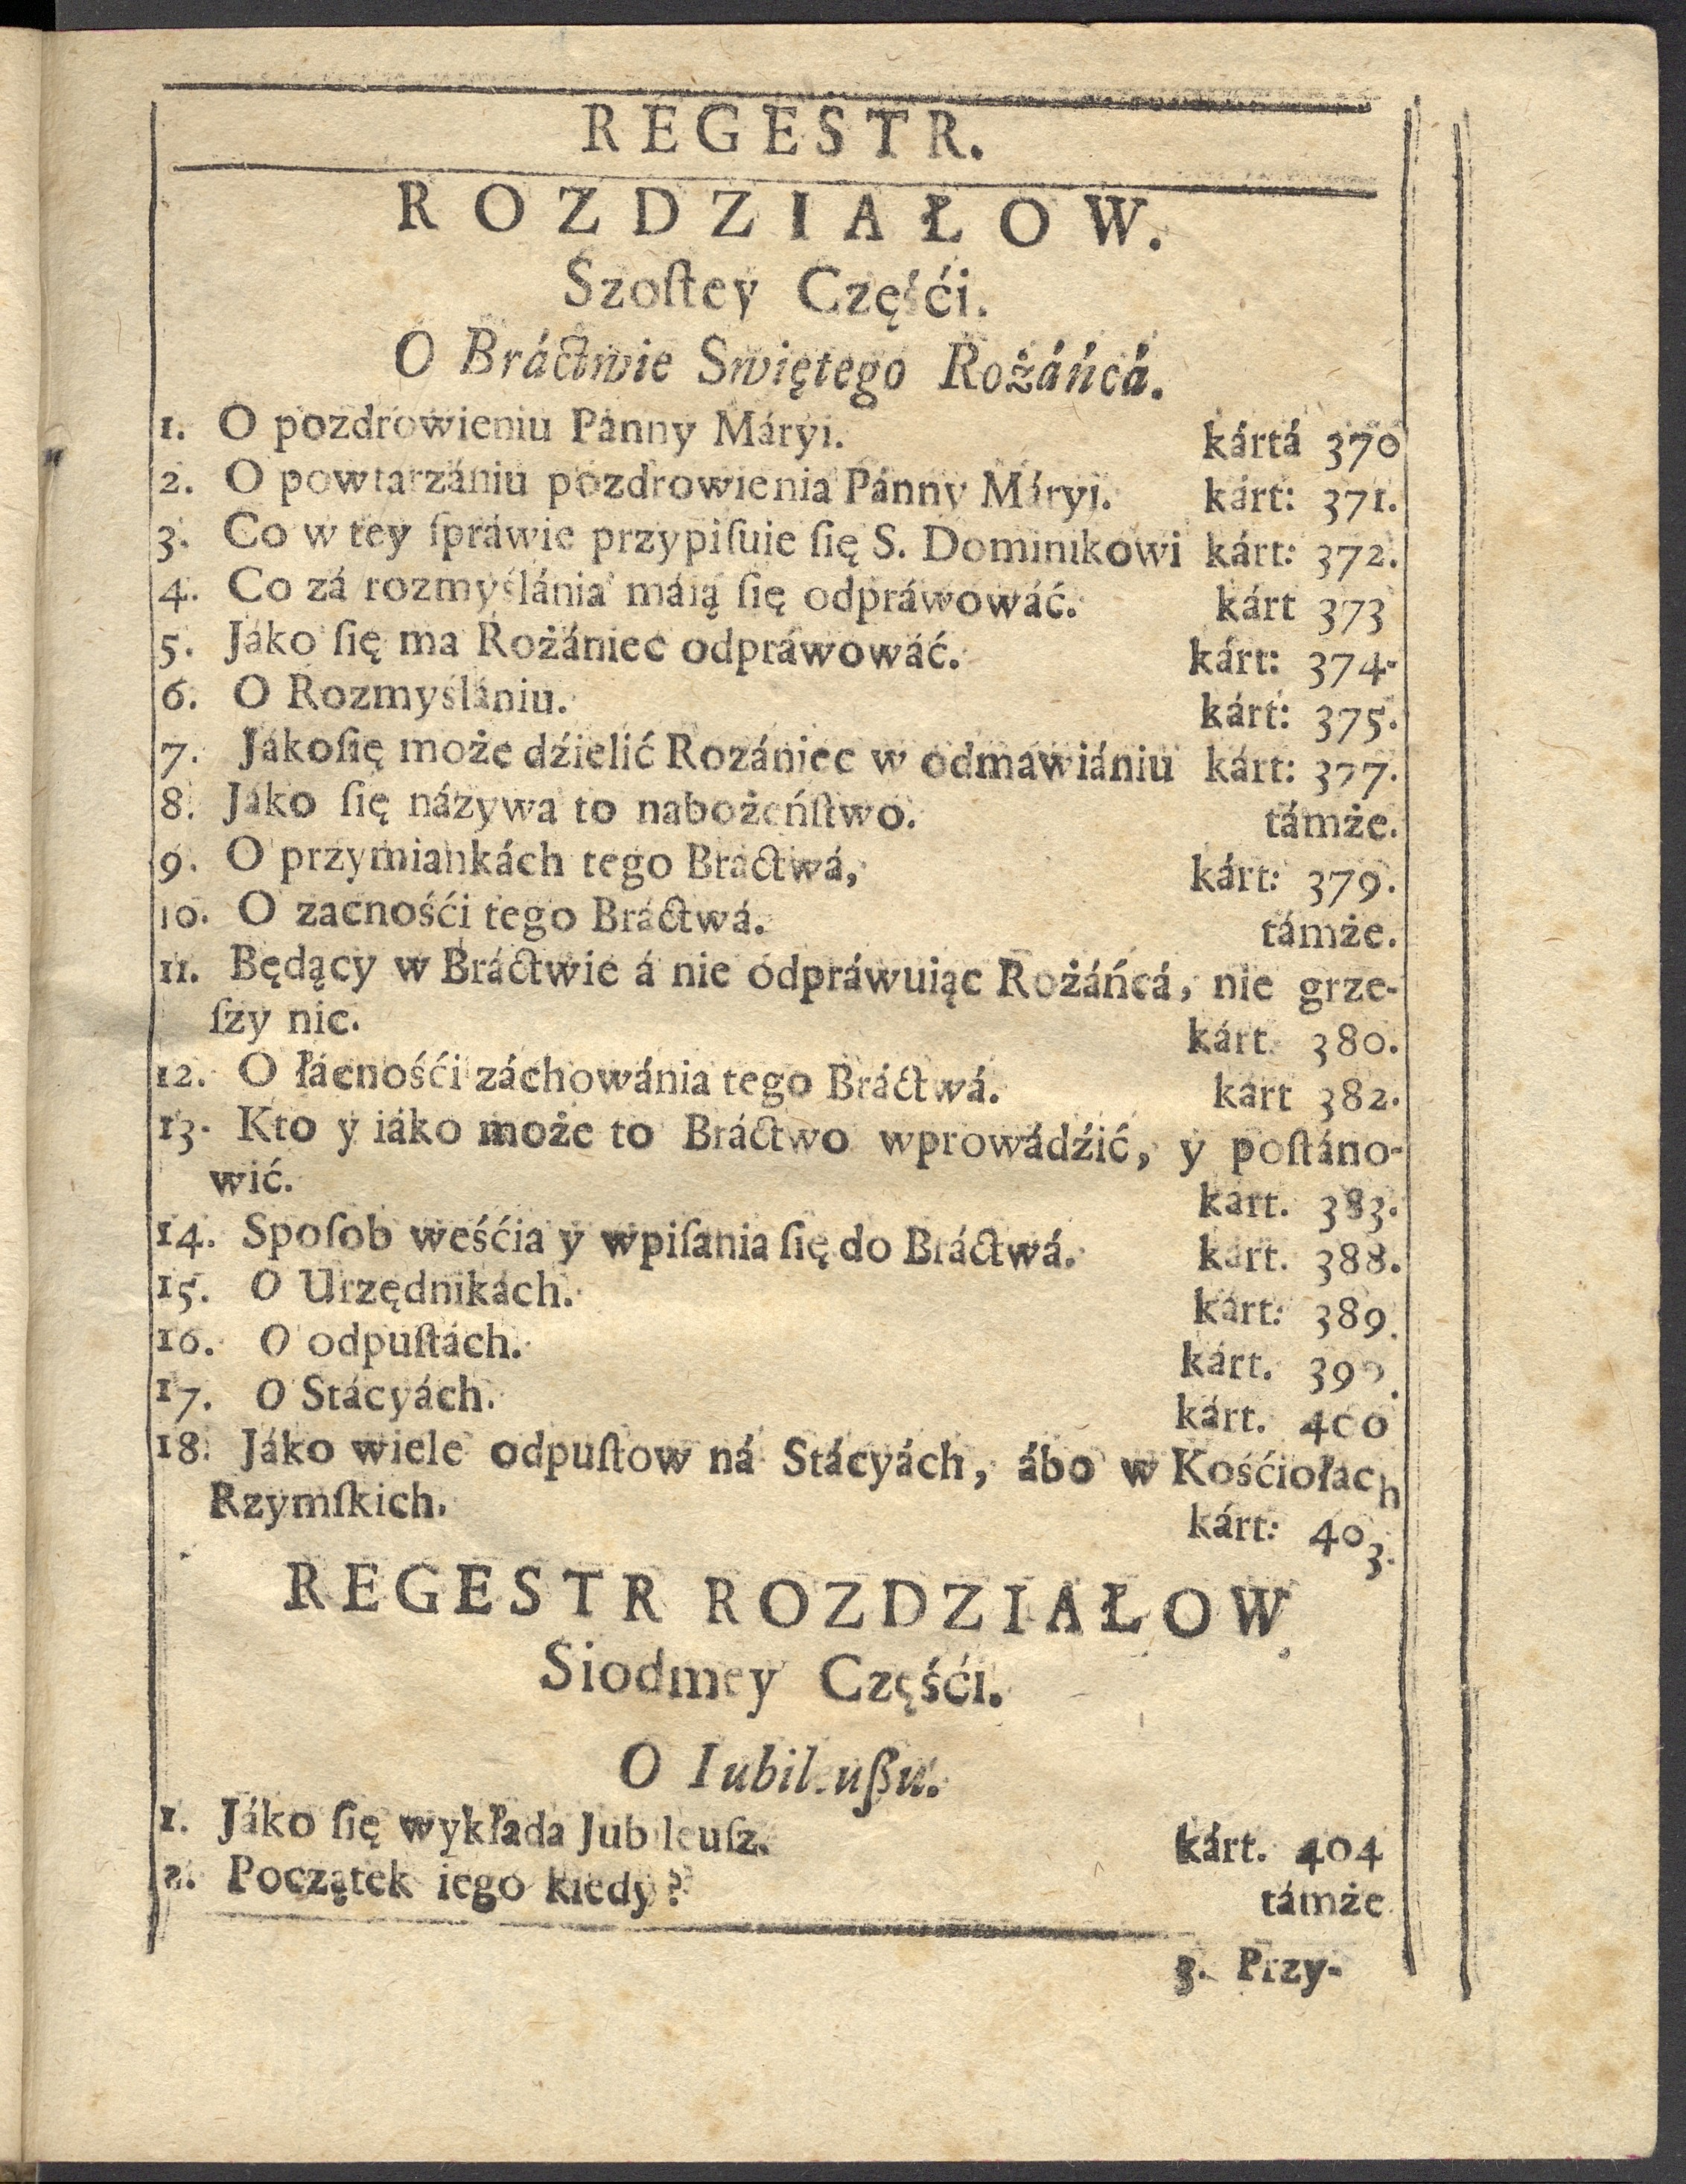 REGESTR.
ROZDZIAŁOW.
Szoſtey Częśći.
O Bráctwie Swiętego Rożáńcá.
1. O pozdrowieniu Pánny Máryi. kártá 370
2. O powtarzániu pozdrowienia Pánny Máryi. kárt: 371.
3. Co w tey ſpráwie przypiſuie ſię S. Dominikowi kárt: 372.
4. Co zá rozmyślánia máią ſię odpráwowáć. kárt 373
5. Jáko ſię ma Rożániec odpráwowáć. kárt: 374.
6. O Rozmyślániu. kárt: 375.
7. Jákoſię może dźielić Rozániec w odmawiániu kárt: 377.
8. Jáko ſię názywa to nabożeńſtwo. támże.
9. O przymiankách tego Bráctwá, kárt: 379.
10. O zacnośći tego Bráctwá. támże.
11. Będący w Bráctwie á nie odpráwuiąc Rożáńcá, nie grze-
ſzy nic. kárt. 380.
12. O łácnośći záchowánia tego Bráctwá. kárt 382.
13. Kto y iáko może to Bráctwo wprowádźić, y poſtáno-
wić. kárt. 383.
14. Spoſob weśćia y wpiſania ſię do Bráctwá. kárt. 388.
15. O Urzędnikách. kárt: 389.
16. O odpuſtách. kárt. 390.
17. O Stácyách. kárt. 400
18. Jáko wiele odpuſtow ná Stácyách, ábo w Kośćiołach
Rzymſkich. kárt: 403.
REGESTR ROZDZIAŁOW.
Siodmey Częśći.
O Iubileußu.
1. Jáko ſię wykłada Jubileuſz. kárt. 404
2. Początek iego kiedy? támże
3. Przy-